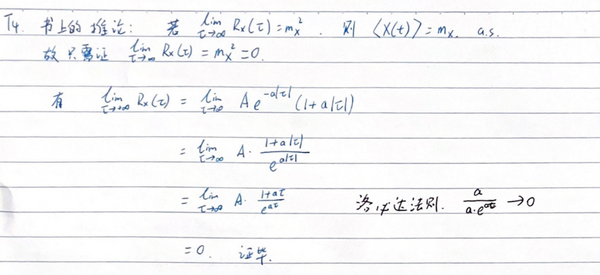 T4. 书上的推论: 若 lim_{τ→∞} R_X(τ)=m_X². 则 ⟨X(t)⟩=m_X. a.s.
故只需证 lim_{τ→∞} R_X(τ)=m_X²=0.
有 lim_{τ→+∞} R_X(τ) = lim_{τ→∞} A e^{-a|τ|} (1+a|τ|)
= lim_{τ→∞} A· (1+a|τ|)/e^{a|τ|}
= lim_{τ→∞} A· (1+aτ)/e^{aτ} 洛必达法则. a/(a·e^{aτ}) →0
=0. 证毕.